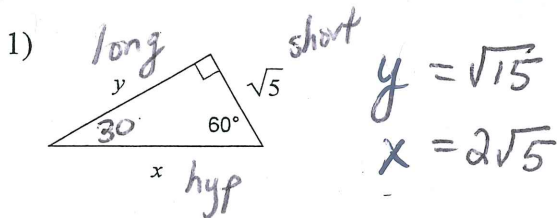 1)
long
short
y
√5
30
60°
x
hyp
y = √15
x = 2√5